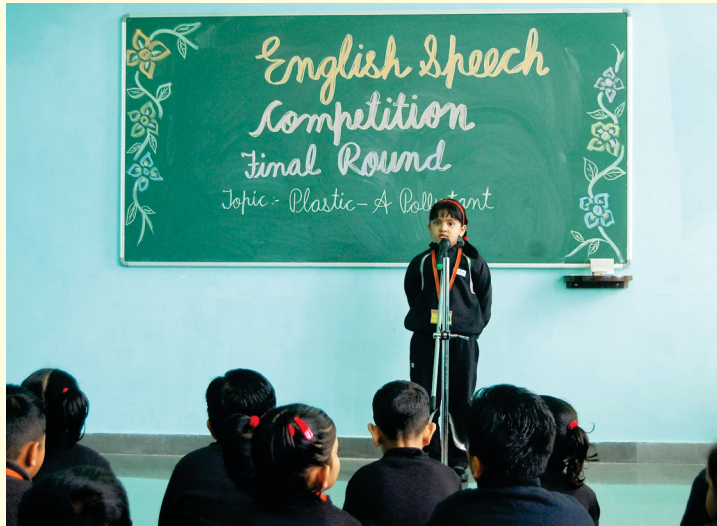 English Speech
Competition
Final Round
Topic:- Plastic-A Pollutant